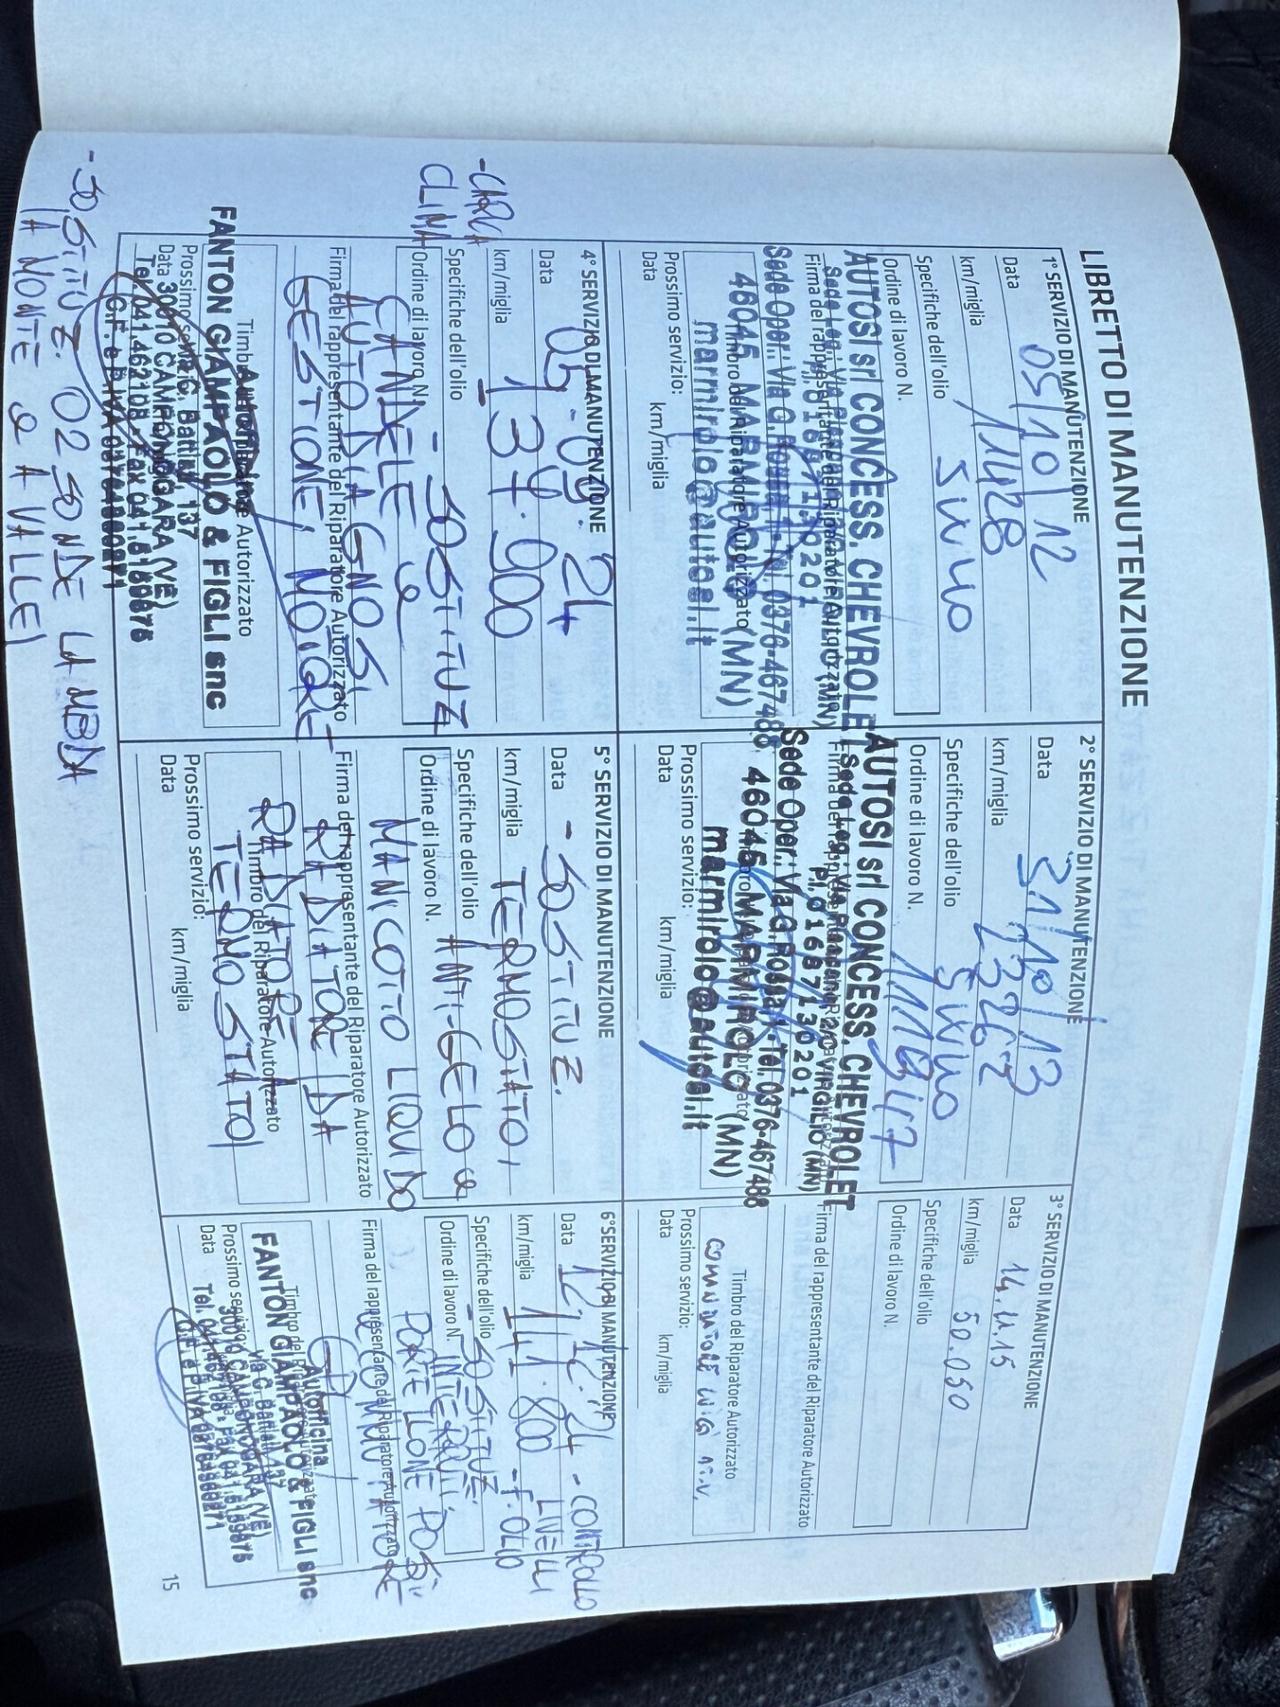 LIBRETTO DI MANUTENZIONE
1° SERVIZIO DI MANUTENZIONE
Data 05/10/12
km/miglia 11428
Specifiche dell'olio 5W40
Ordine di lavoro N.
AUTOSI srl CONCESS. CHEVROLET
Firma del rappresentante del Riparatore Autorizzato
Sede Oper.: Via G. Rossa 1 - Tel. 0376-467488
46045 MARMIROLO (MN)
marmirolo@autosi.it
Prossimo servizio:
Data km/miglia
2° SERVIZIO DI MANUTENZIONE
Data 31/10/13
km/miglia
Specifiche dell'olio 5W40
Ordine di lavoro N.
AUTOSI srl CONCESS. CHEVROLET
P.I. 01687130201
Sede Oper.: Via G. Rossa 1 - Tel. 0376-467488
46045 MARMIROLO (MN)
marmirolo@autosi.it
Prossimo servizio:
Data km/miglia
3° SERVIZIO DI MANUTENZIONE
Data 14.11.15
km/miglia 50.050
Specifiche dell'olio
Ordine di lavoro N.
Firma del rappresentante del Riparatore Autorizzato
Timbro del Riparatore Autorizzato
Prossimo servizio:
Data km/miglia
4° SERVIZIO DI MANUTENZIONE
Data 05.09.24
km/miglia 137.900
- CARICA
CLIMA
Specifiche dell'olio - SOSTITUZ
Ordine di lavoro N. CANDELE e
AUTODIAGNOSI
Firma del rappresentante del Riparatore Autorizzato
GESTIONE MOTORE
Timbro Autorizzato
Autofficina
FANTON GIAMPAOLO & FIGLI snc
Via G. Battisti, 137
30010 CAMPONOGARA (VE)
Tel. 041.462108 - Fax 041.5159875
Prossimo servizio:
Data
- SOSTITUZ. O2 SONDE LAMBDA
(A MONTE e A VALLE)
5° SERVIZIO DI MANUTENZIONE
Data - SOSTITUZ.
km/miglia TERMOSTATO,
Specifiche dell'olio ANTI-GELO e
Ordine di lavoro N.
MANICOTTO LIQUIDO
Firma del rappresentante del Riparatore Autorizzato
RADIATORE (DA
RADIATORE A
Timbro del Riparatore Autorizzato
TERMOSTATO)
Prossimo servizio:
Data km/miglia
6° SERVIZIO DI MANUTENZIONE
Data 12.12.24 - CONTROLLO
LIVELLI
km/miglia 141.800 - F. OLIO
Specifiche dell'olio - SOSTITUZ.
Ordine di lavoro N.
PORTELLONE POST.
Firma del rappresentante del Riparatore Autorizzato
Autofficina
FANTON GIAMPAOLO & FIGLI snc
Via G. Battisti, 137
30010 CAMPONOGARA (VE)
Tel. 041.462108 - Fax 041.5159875
Prossimo servizio:
Data
15